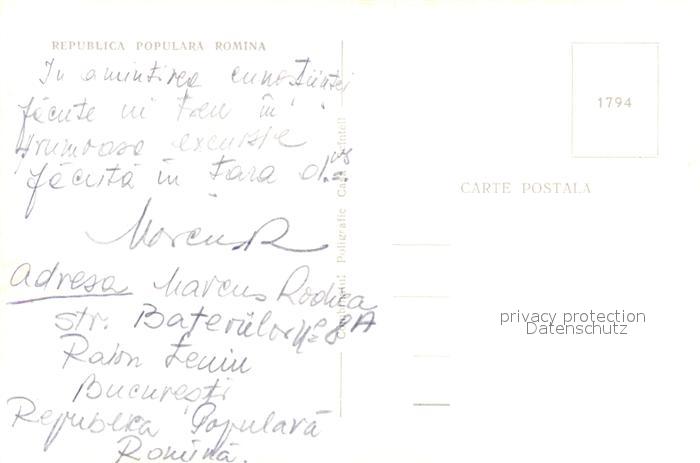 REPUBLICA POPULARA ROMINA
In amintirea cunoștiinței
făcute in tren în
frumoasa excursie
făcută în țara dvs
Marcus R
adresa Marcus Rodica
str. Bateriilor Nº 8A
Raion Lenin
București
Republica Populară
Romînă.
Combinatul Poligrafic Casa Scînteii
1794
CARTE POSTALA
privacy protection
Datenschutz